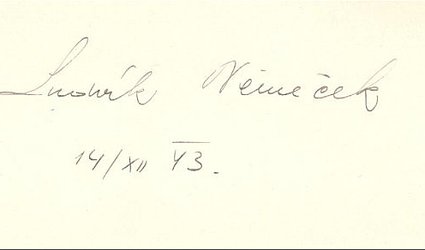 Ludvík Němeček
14/XII 43.